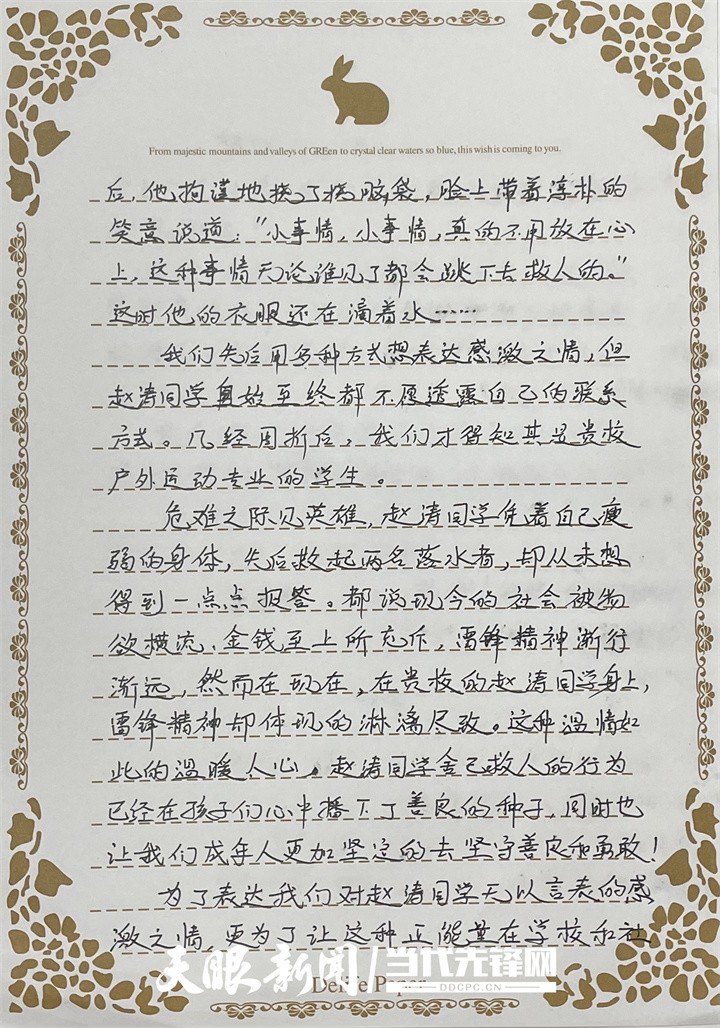 From majestic mountains and valleys of GREen to crystal clear waters so blue, this wish is coming to you.
后，他拘谨地挠了挠脑袋，脸上带着淳朴的
笑意说道："小事情，小事情，真的不用放在心
上，这种事情无论谁见了都会跳下去救人的。"
这时他的衣服还在滴着水……
我们先后用多种方式想表达感激之情，但
赵涛同学自始至终都不愿透露自己的联系
方式。几经周折后，我们才得知其是贵校
户外运动专业的学生。
危难之际见英雄，赵涛同学凭着自己瘦
弱的身体，先后救起两名落水者，却从未想
得到一点点报答。都说现今的社会被物
欲横流、金钱至上所充斥，雷锋精神渐行
渐远，然而在现在，在贵校的赵涛同学身上，
雷锋精神却体现的淋漓尽致。这种温情如
此的温暖人心。赵涛同学舍己救人的行为
已经在孩子们心中播下了善良的种子，同时也
让我们成年人更加坚定的去坚守善良和勇敢！
为了表达我们对赵涛同学无以言表的感
激之情，更为了让这种正能量在学校和社
天眼新闻 当代先锋网
DDCPC.CN